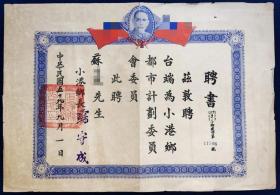 聘書
茲敦聘
台端為小港鄉
都市計劃委員
會委員
此聘
蘇 先生
小港鄉長
中華民國五十九年九月一日